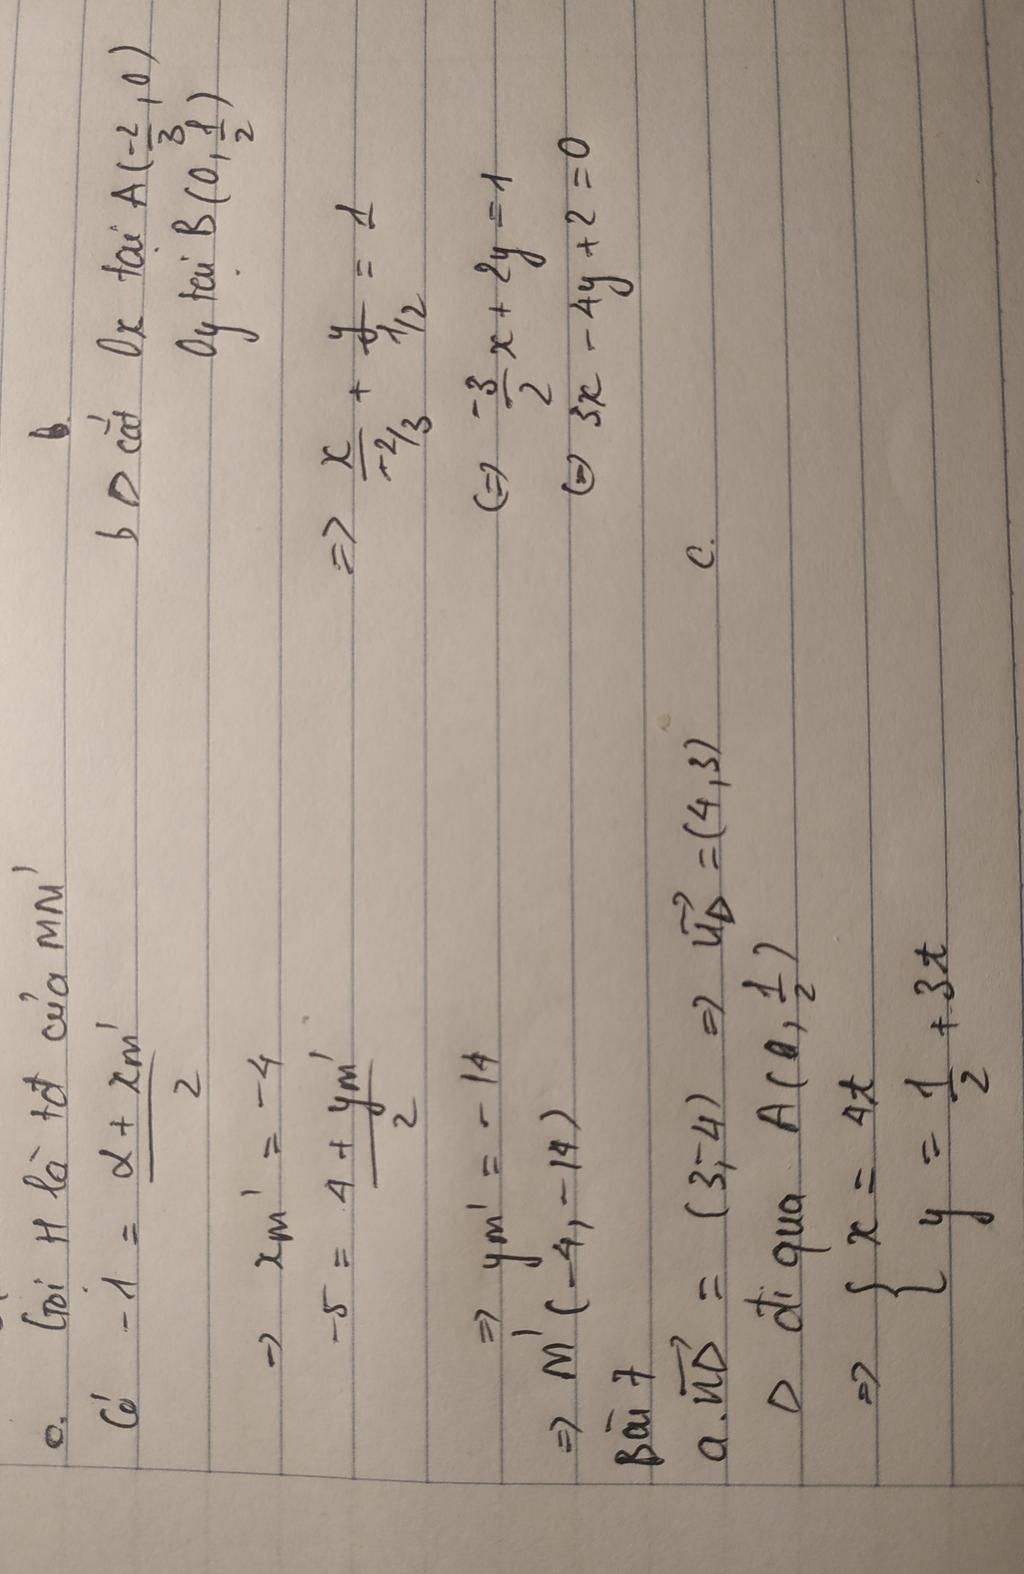 c. Gọi H là tđ của MM'
Có -1 = (2 + xm')/2
=> xm' = -4
-5 = (4 + ym')/2
=> ym' = -14
=> M'(-4, -14)
Bài 7
a. n⃗Δ = (3,-4) => u⃗Δ = (4,3)
Δ đi qua A(0, 1/2)
=> { x = 4t
{ y = 1/2 + 3t
b.
b Δ cắt Ox tại A(-2/3, 0)
Oy tại B(0, 1/2)
=> x/(-2/3) + y/(1/2) = 1
(=) -3/2 x + 2y = 1
(=) 3x - 4y + 2 = 0
c.